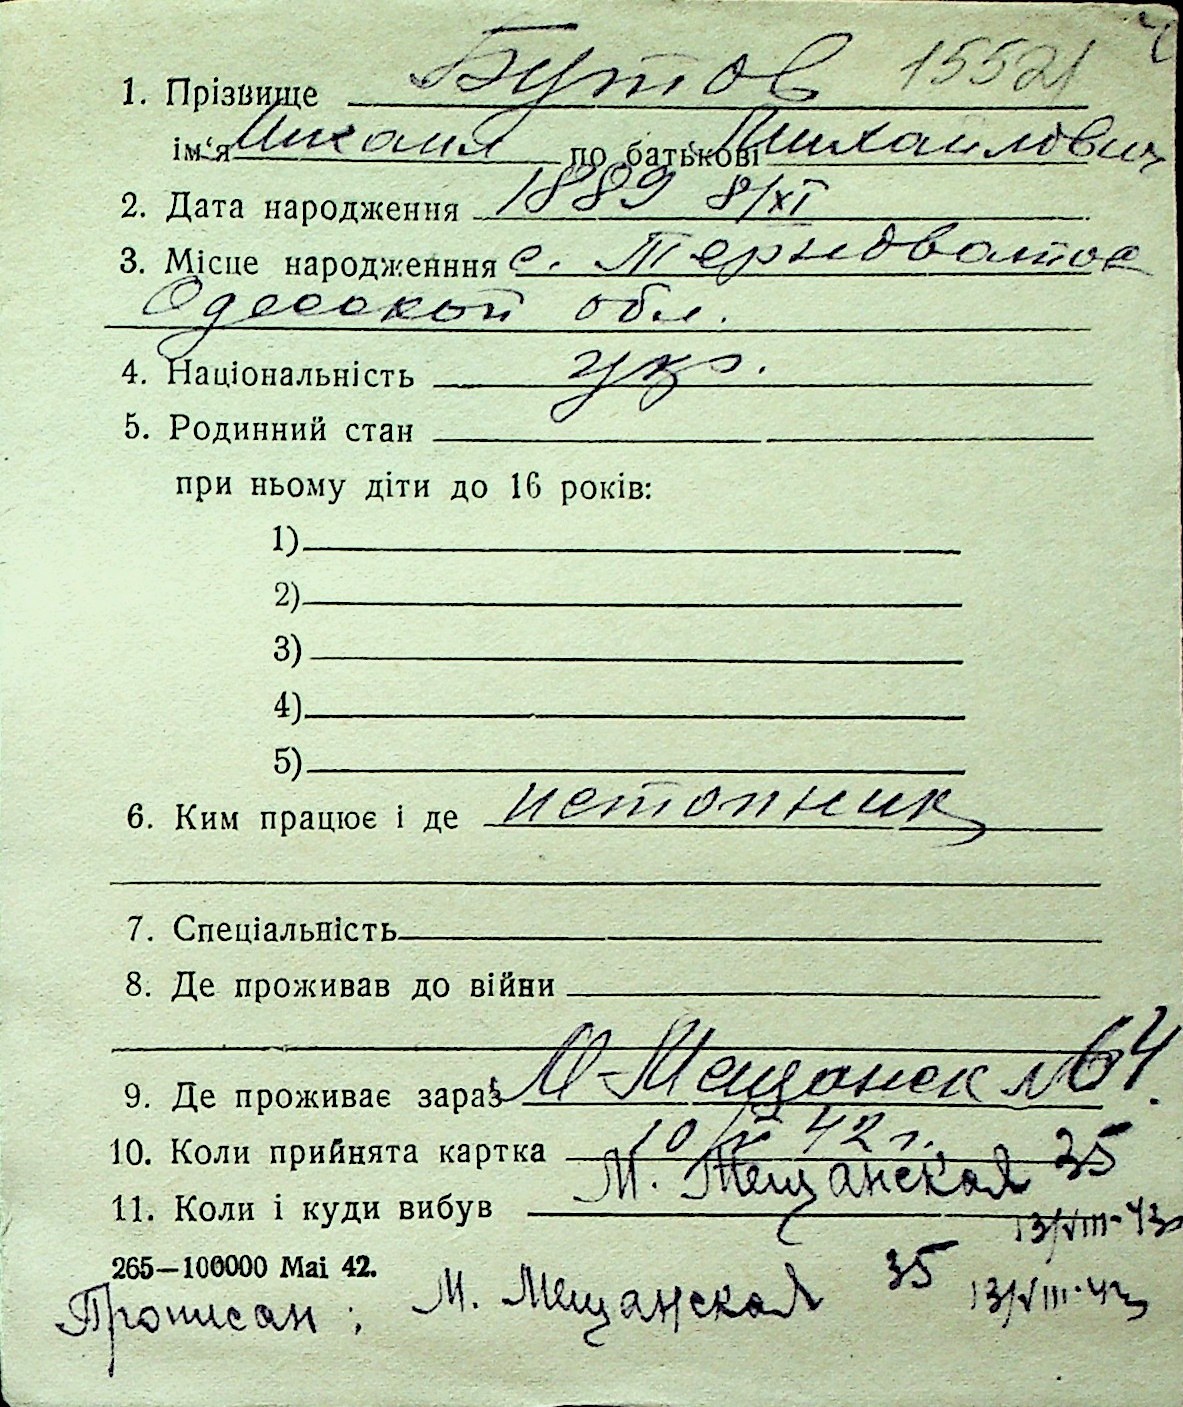 1. Прізвище Бутов 15521
ім'я Михаил по батькові Михайлович
2. Дата народження 1889 8/XI
3. Місце народженння с. Терноватое
Одесской обл.
4. Національність укр.
5. Родинний стан
при ньому діти до 16 років:
1)
2)
3)
4)
5)
6. Ким працює і де истопник
7. Спеціальність
8. Де проживав до війни
9. Де проживає зараз М-Мещанск № 64.
10. Коли прийнята картка 10/X 42 г.
М. Мещанская 35
11. Коли і куди вибув 13/VIII-43
265—100000 Mai 42.
Прописан: М. Мещанская 35 13/VIII-43